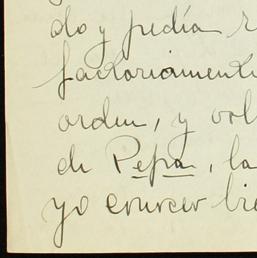 do y pedía
factoriamente
orden, y vol
de Pepa, la
yo conocer bie